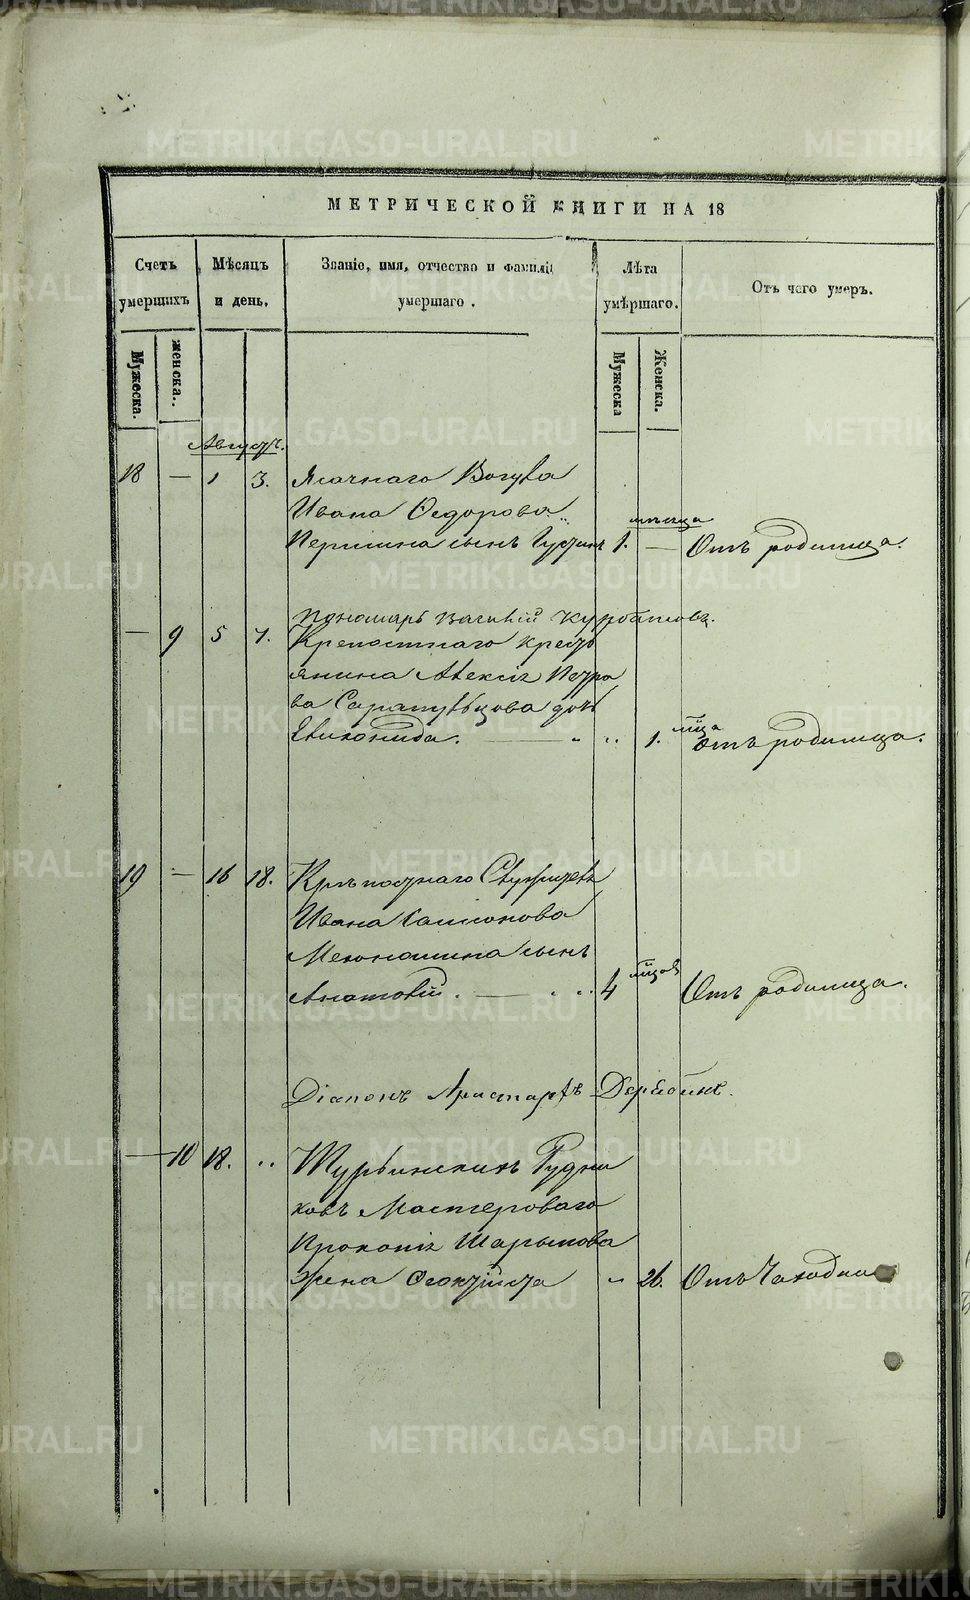 МЕТРИЧЕСКОЙ КНИГИ НА 18
Счетъ умершихъ
Мѣсяцъ и день.
Званіе, имя, отчество и фамилія умершаго.
Лѣта умѣршаго.
Отъ чего умеръ.
Мужеска.
женска..
Мужеска
Женска.
Августъ.
18 — 1 3. Ясачнаго Вогула
Ивана Ѳедорова
Першина сынъ 1. мѣсяца — Отъ родимца.
Пономарь Василій Курбатовъ.
— 9 5 7. Крепостнаго кресть
янина Алексѣя Петро
ва Сарапульцова дочь
1. мца Отъ родимца.
19 — 16 18. Крѣпостнаго
Ивана Самсонова
Мехоношина сынъ
Анатолій. 4 мцов Отъ родимца.
Діаконъ Аристархъ Дерябинъ.
— 10 18. .. Турьинскихъ Рудни
ковъ Мастероваго
Прокопія Шарымова
жена Ѳеоктиста „ 26. Отъ Чахотки
METRIKI.GASO-URAL.RU